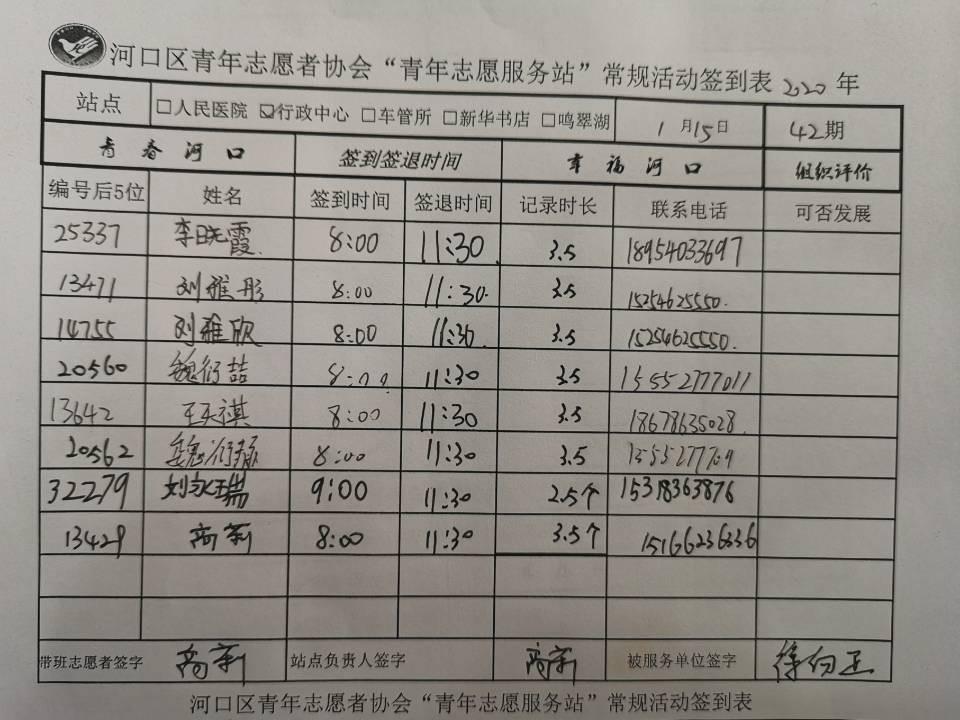 河口区青年志愿者协会“青年志愿服务站”常规活动签到表 2020 年
站点 □人民医院 ☑行政中心 □车管所 □新华书店 □鸣翠湖 1月15日 42期
青春河口 签到签退时间 幸福河口 组织评价
编号后5位 姓名 签到时间 签退时间 记录时长 联系电话 可否发展
25337 李晓霞 8:00 11:30 3.5 18954033697
13471 刘雅彤 8:00 11:30 3.5 15254625550
14755 刘雅欣 8:00 11:30 3.5 15254625550
20560 魏衍喆 8:00 11:30 3.5 15552777011
13642 王天祺 8:00 11:30 3.5 18678635028
20562 魏衍 8:00 11:30 3.5
32279 刘瑞 9:00 11:30 2.5个 15318363876
13429 商新 8:00 11:30 3.5个 15166236336
带班志愿者签字 商新 站点负责人签字 商新 被服务单位签字 徐向正
河口区青年志愿者协会“青年志愿服务站”常规活动签到表